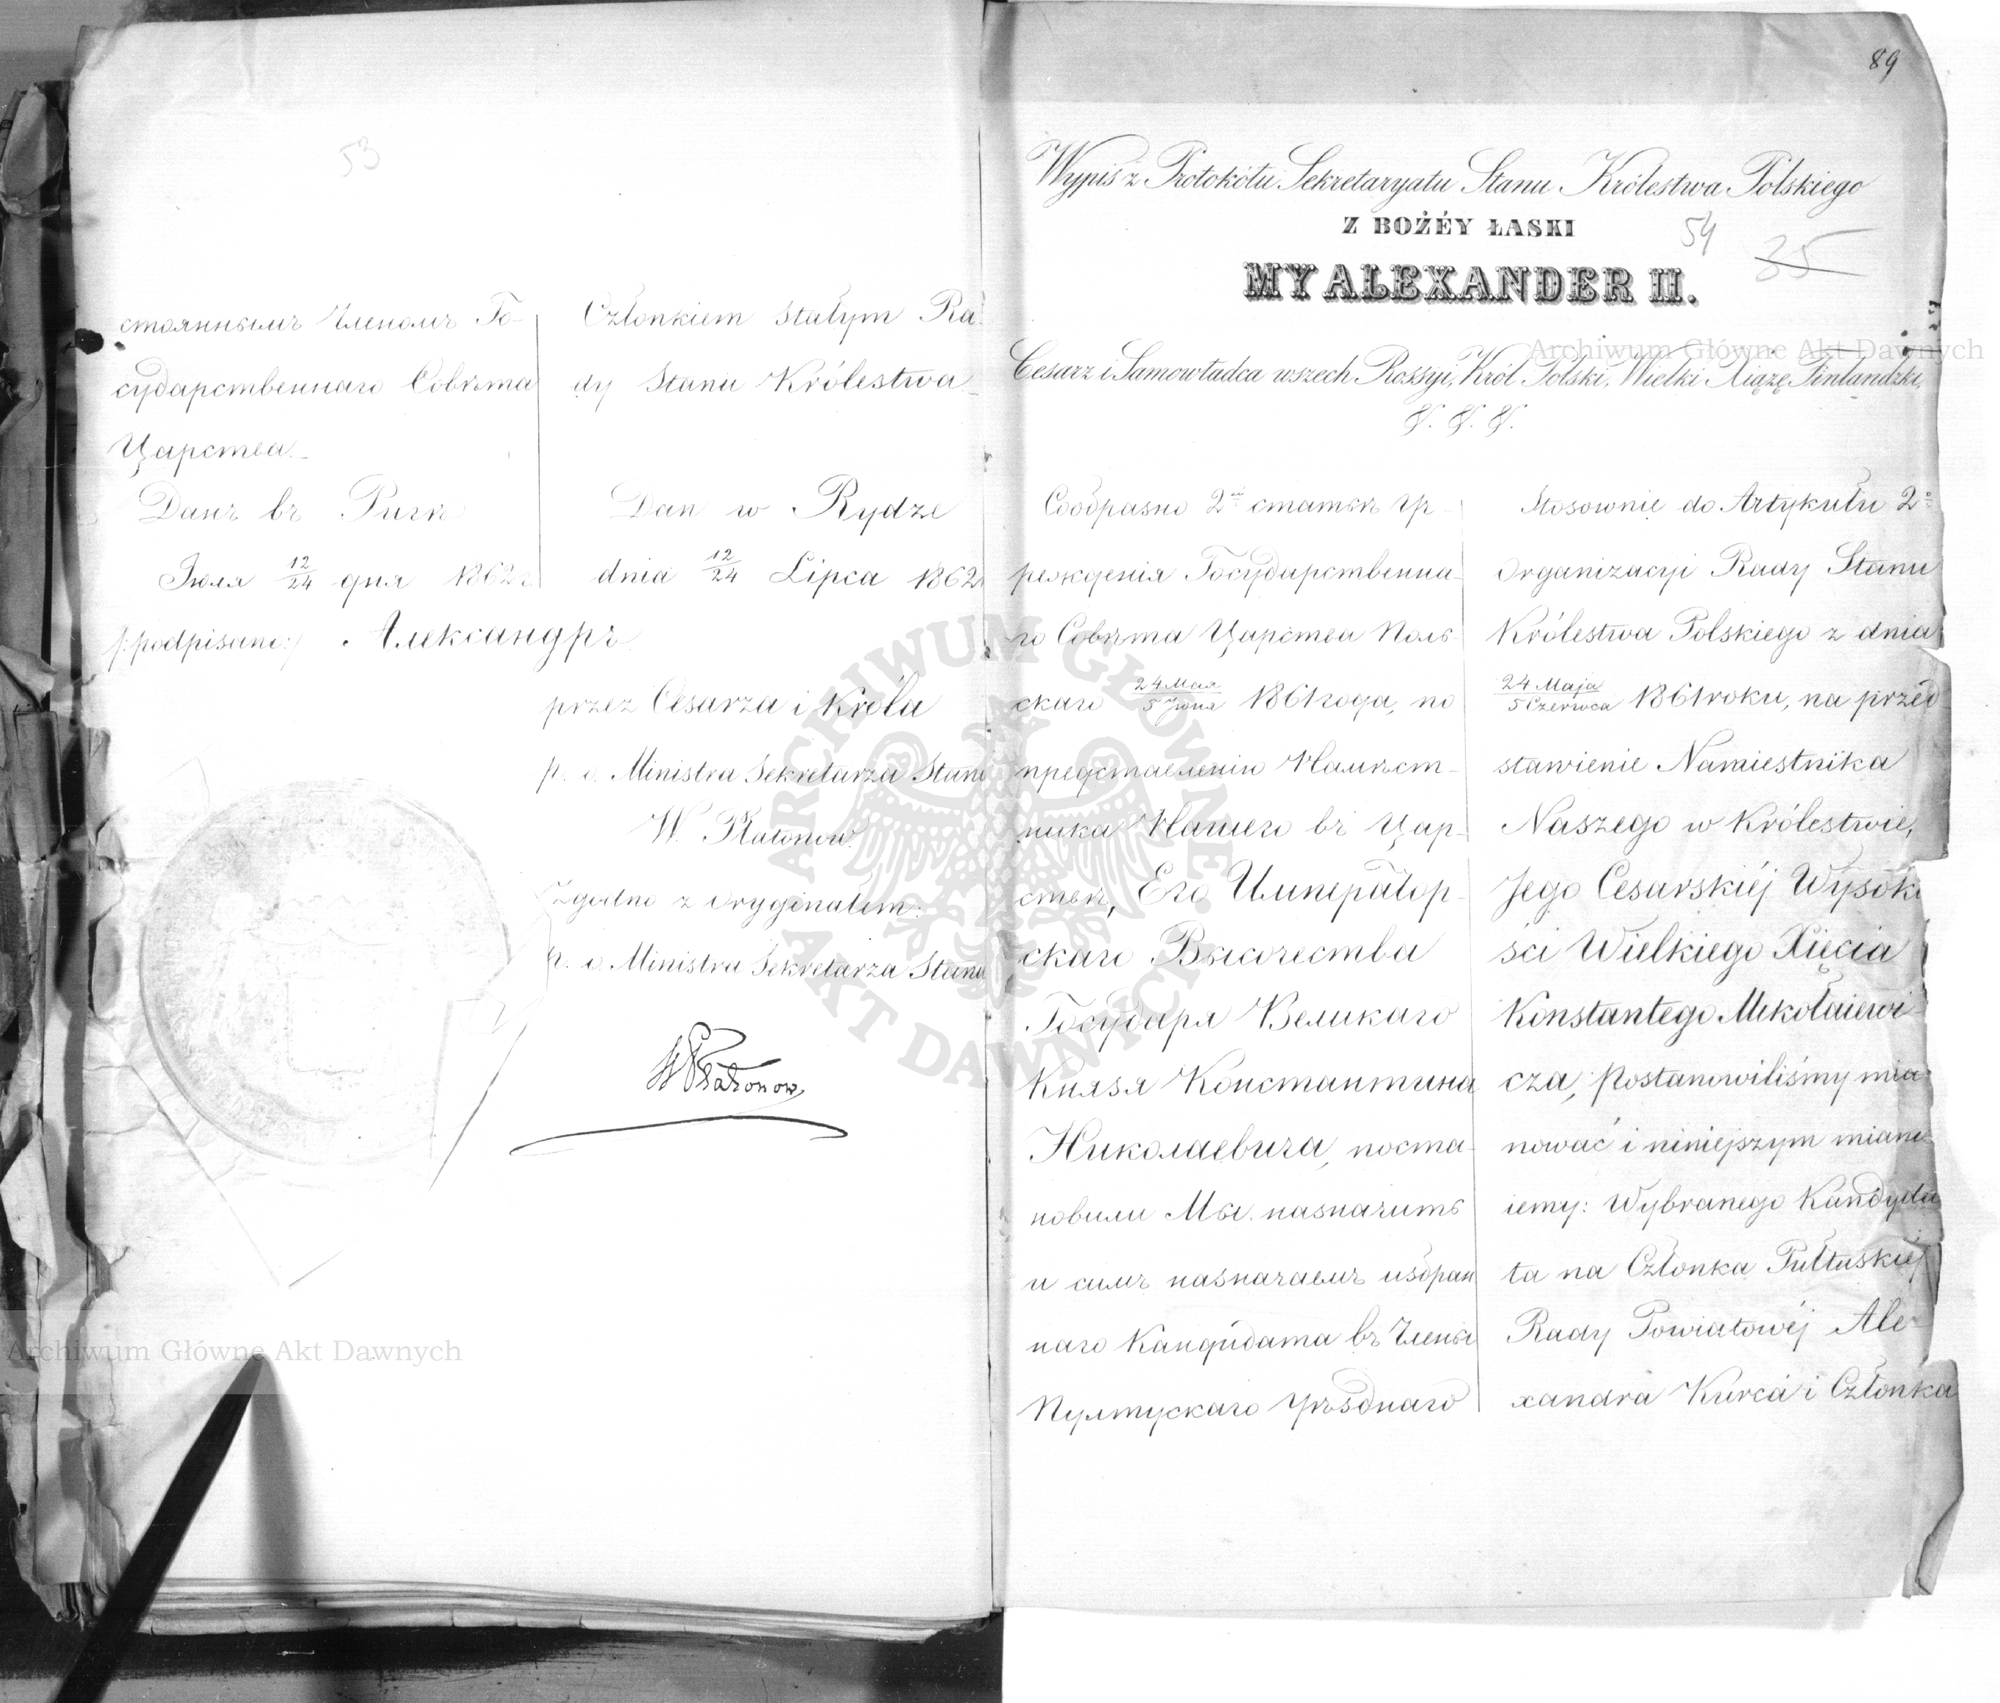 53
стояннымъ Членомъ Го-
сударственнаго Совѣта
Царства.
Данъ въ Ригѣ
Іюля 12/24 дня 1862 г.
Członkiem stałym Ra-
dy Stanu Królestwa.
Dan w Rydze
dnia 12/24 Lipca 1862 r.
/:podpisano:/ Александръ
przez Cesarza i Króla
p. o. Ministra Sekretarza Stanu
W. Płatonow.
Zgodno z Oryginałem:
p. o. Ministra Sekretarza Stanu
W Płatonow
89
Wypis z Protokółu Sekretaryatu Stanu Królestwa Polskiego
Z BOŻÉY ŁASKI
54
35
MY ALEXANDER II.
Cesarz i Samowładca wszech Rossyi, Król Polski, Wielki Xiążę Finlandzki,
&. &. &.
Сообразно 2ой статьѣ Уч-
режденія Государственна-
го Совѣта Царства Поль-
скаго 24 Мая/5 Іюня 1861 года, по
представленію Намѣст-
ника Нашего въ Цар-
ствѣ, Его Император-
скаго Высочества
Государя Великаго
Князя Константина
Николаевича, поста-
новили Мы назначить
и симъ назначаемъ избран
наго Кандидата въ Члены
Пултускаго Уѣзднаго
Stosownie do Artykułu 2o
Organizacyi Rady Stanu
Królestwa Polskiego z dnia
24 Maja/5 Czerwca 1861 roku, na przed
stawienie Namiestnika
Naszego w Królestwie,
Jego Cesarskiéj Wysoko
ści Wielkiego Xięcia
Konstantego Mikołaiewi-
cza, postanowiliśmy mia-
nować i niniejszym miano-
iemy: Wybranego Kandyda
ta na Członka Pułtuskiéj
Rady Powiatowéj Ale-
xandra Kurca i Członka
Archiwum Główne Akt Dawnych
Archiwum Główne Akt Dawnych
ARCHIWUM GŁÓWNE
AKT DAWNYCH